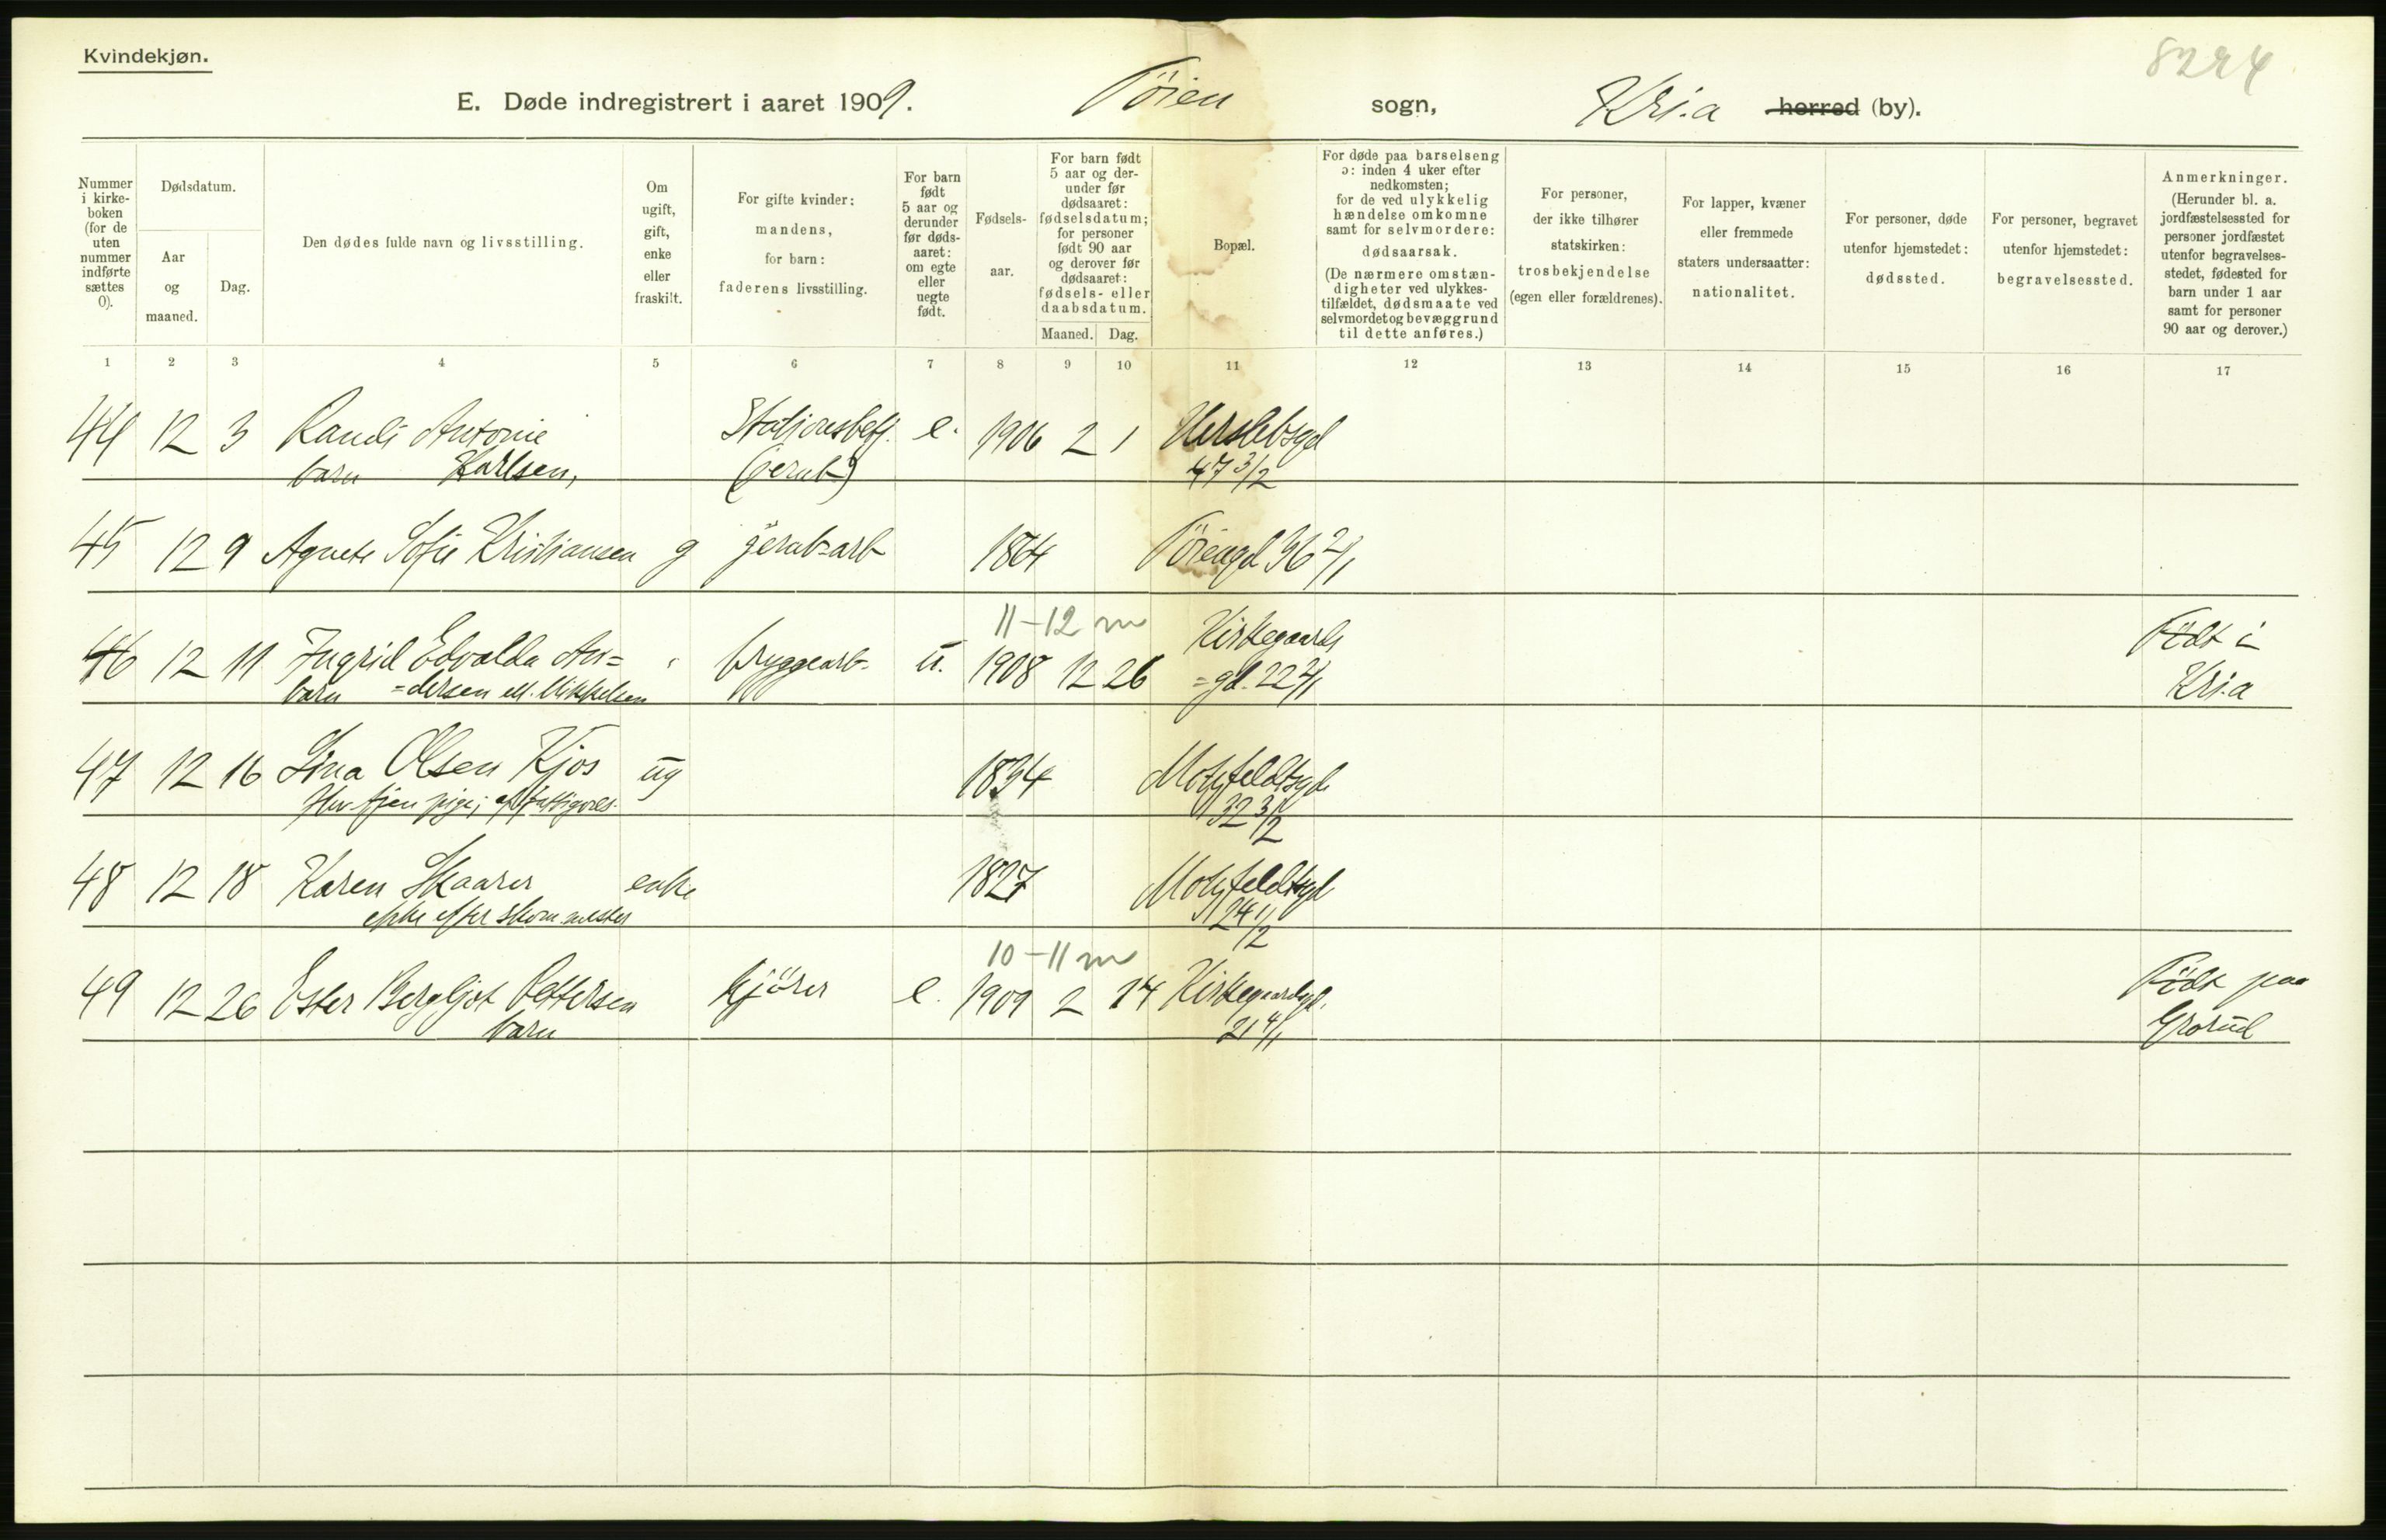 Kvindekjøn.
8224
E. Døde indregistrert i aaret 1909. Töien sogn, Kri.a herred (by).
Nummer i kirke-boken (for de uten nummer indførte sættes 0).
Dødsdatum.
Aar og maaned.
Dag.
Den dødes fulde navn og livsstilling.
Om ugift, gift, enke eller fraskilt.
For gifte kvinder: mandens, for barn: faderens livsstilling.
For barn født 5 aar og derunder før døds-aaret: om egte eller uegte født.
Fødsels-aar.
For barn født 5 aar og der-under før dødsaaret: fødselsdatum; for personer født 90 aar og derover før dødsaaret: fødsels- eller daabsdatum.
Maaned. Dag.
Bopæl.
For døde paa barselseng ɔ: inden 4 uker efter nedkomsten; for de ved ulykkelig hændelse omkomne samt for selvmordere: dødsaarsak. (De nærmere omstæn-digheter ved ulykkes-tilfældet, dødsmaate ved selvmordet og bevæggrund til dette anføres.)
For personer, der ikke tilhører statskirken: trosbekjendelse (egen eller forældrenes).
For lapper, kvæner eller fremmede staters undersaatter: nationalitet.
For personer, døde utenfor hjemstedet: dødssted.
For personer, begravet utenfor hjemstedet: begravelsessted.
Anmerkninger. (Herunder bl. a. jordfæstelsessted for personer jordfæstet utenfor begravelses-stedet, fødested for barn under 1 aar samt for personer 90 aar og derover.)
1 2 3 4 5 6 7 8 9 10 11 12 13 14 15 16 17
44 12 3 Randi Antonie Stationsbetj. e. 1906 2 1 Herslebsgd
barn Karlsen, (jernb) 47 3/2
45 12 9 Agnete Sofie Kristiansen g jernb=arb 1864 Töiengd 36 2/1
11-12 m Kirkegaards
46 12 11 Ingrid Edvalda An= bryggearb. u. 1908 12 26 =gd. 22 2/1 Födt i
barn =dersen ell. Mikkelsen Kri.a
47 12 16 Lina Olsen Kjos ug 1834 Motzfeldtsgd
32 3/2
48 12 18 Karen Skaarer enke 1827 Motzfeldtsgd
enke efter skom.mester 24 1/2
10-11 m
49 12 26 Ester Bergljot Pettersen kjörer e. 1909 2 14 Kirkegaardsgd. Födt paa
barn 21 4/1 Grorud